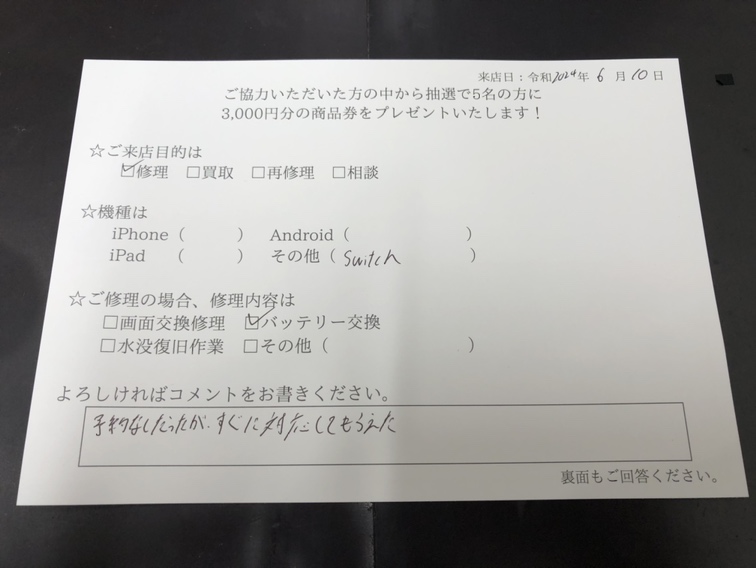 来店日：令和2024年 6 月 10 日
ご協力いただいた方の中から抽選で5名の方に
3,000円分の商品券をプレゼントいたします！
☆ご来店目的は
☑修理 □買取 □再修理 □相談
☆機種は
iPhone（ ） Android（ ）
iPad （ ） その他（ Switch ）
☆ご修理の場合、修理内容は
□画面交換修理 ☑バッテリー交換
□水没復旧作業 □その他（ ）
よろしければコメントをお書きください。
予約なしだったが、すぐに対応してもらえた
裏面もご回答ください。